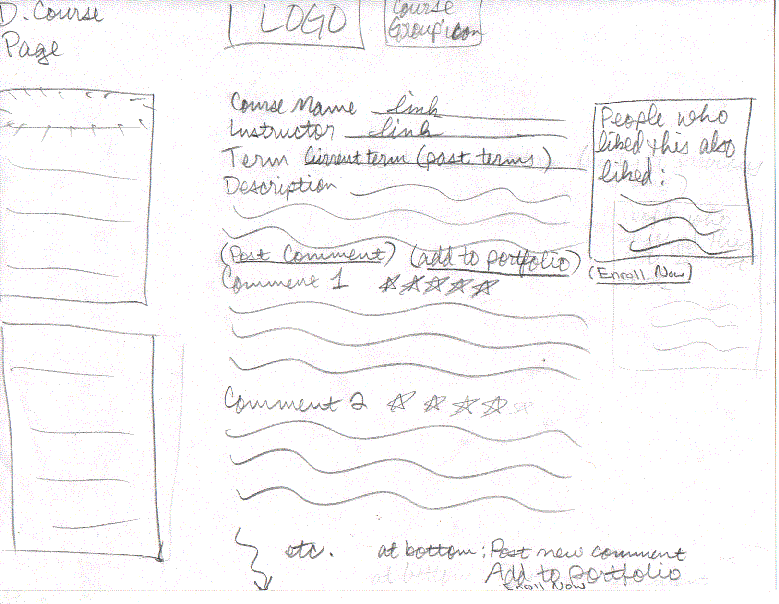 D. Course
Page
LOGO
Course
Group icon
Course Name link
Instructor link
Term Current term (past terms)
Description
(Post Comment) (add to portfolio)
Comment 1
Comment 2
People who
liked this also
liked:
(Enroll Now)
etc. at bottom: Post new comment
at bottom
Add to portfolio
Enroll Now